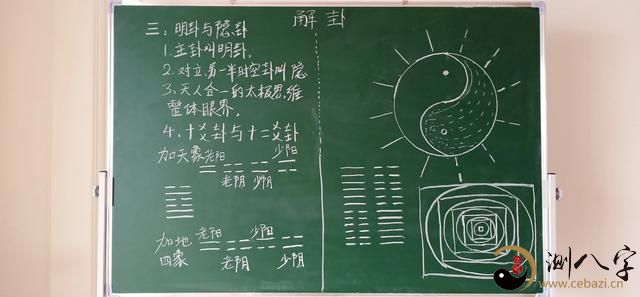 解卦
三、明卦与隐卦
1.主卦叫明卦.
2.对立,另一半时空卦叫隐
3、天人合一的太极思维
整体眼界.
4、十爻卦与十二爻卦
加天象老阳 少阳
老阴 少阴
加地 老阳 少阳
四象 老阴 少阴
测八字
www.cebazi.cn